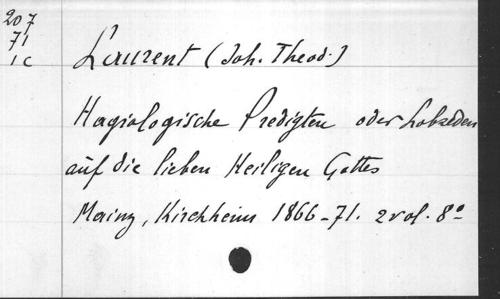 207
71
1c
Laurent (Joh. Theod.)
Hagiologische Predigten oder Lobreden
auf die lieben Heiligen Gottes
Mainz, Kirchheim 1866-71. 2 vol. 8°